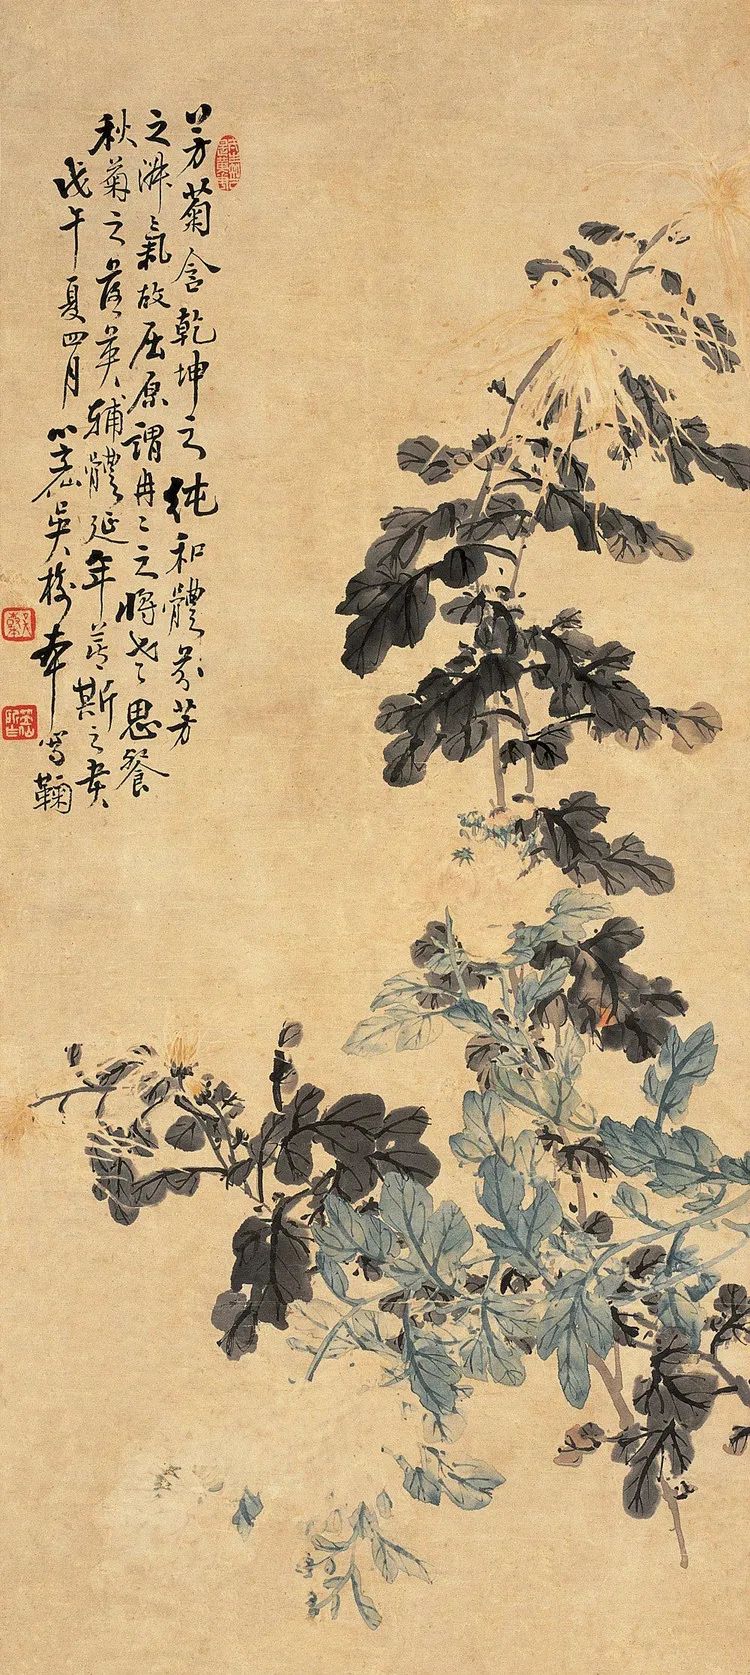 芳菊含乾坤之純和體芬芳
之淑氣故屈原謂冉〻之將老思餐
秋菊之落英輔體延年莫斯之貴
戊午夏四月小吳樹本寫鞠